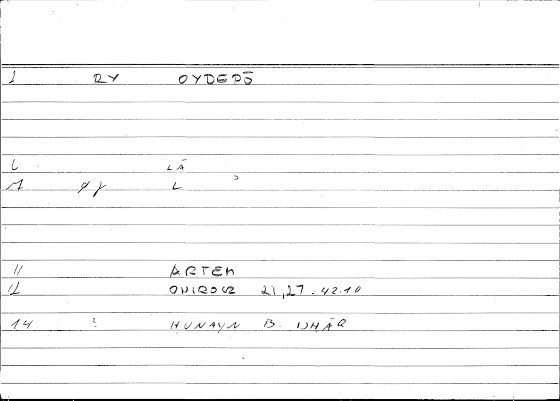 1 RY OYDEPŌ
6 LĀ
L
11 ARTEM
12 ONIROCR 21,27 . 42.10
14 : HUNAYN B. ISHĀQ